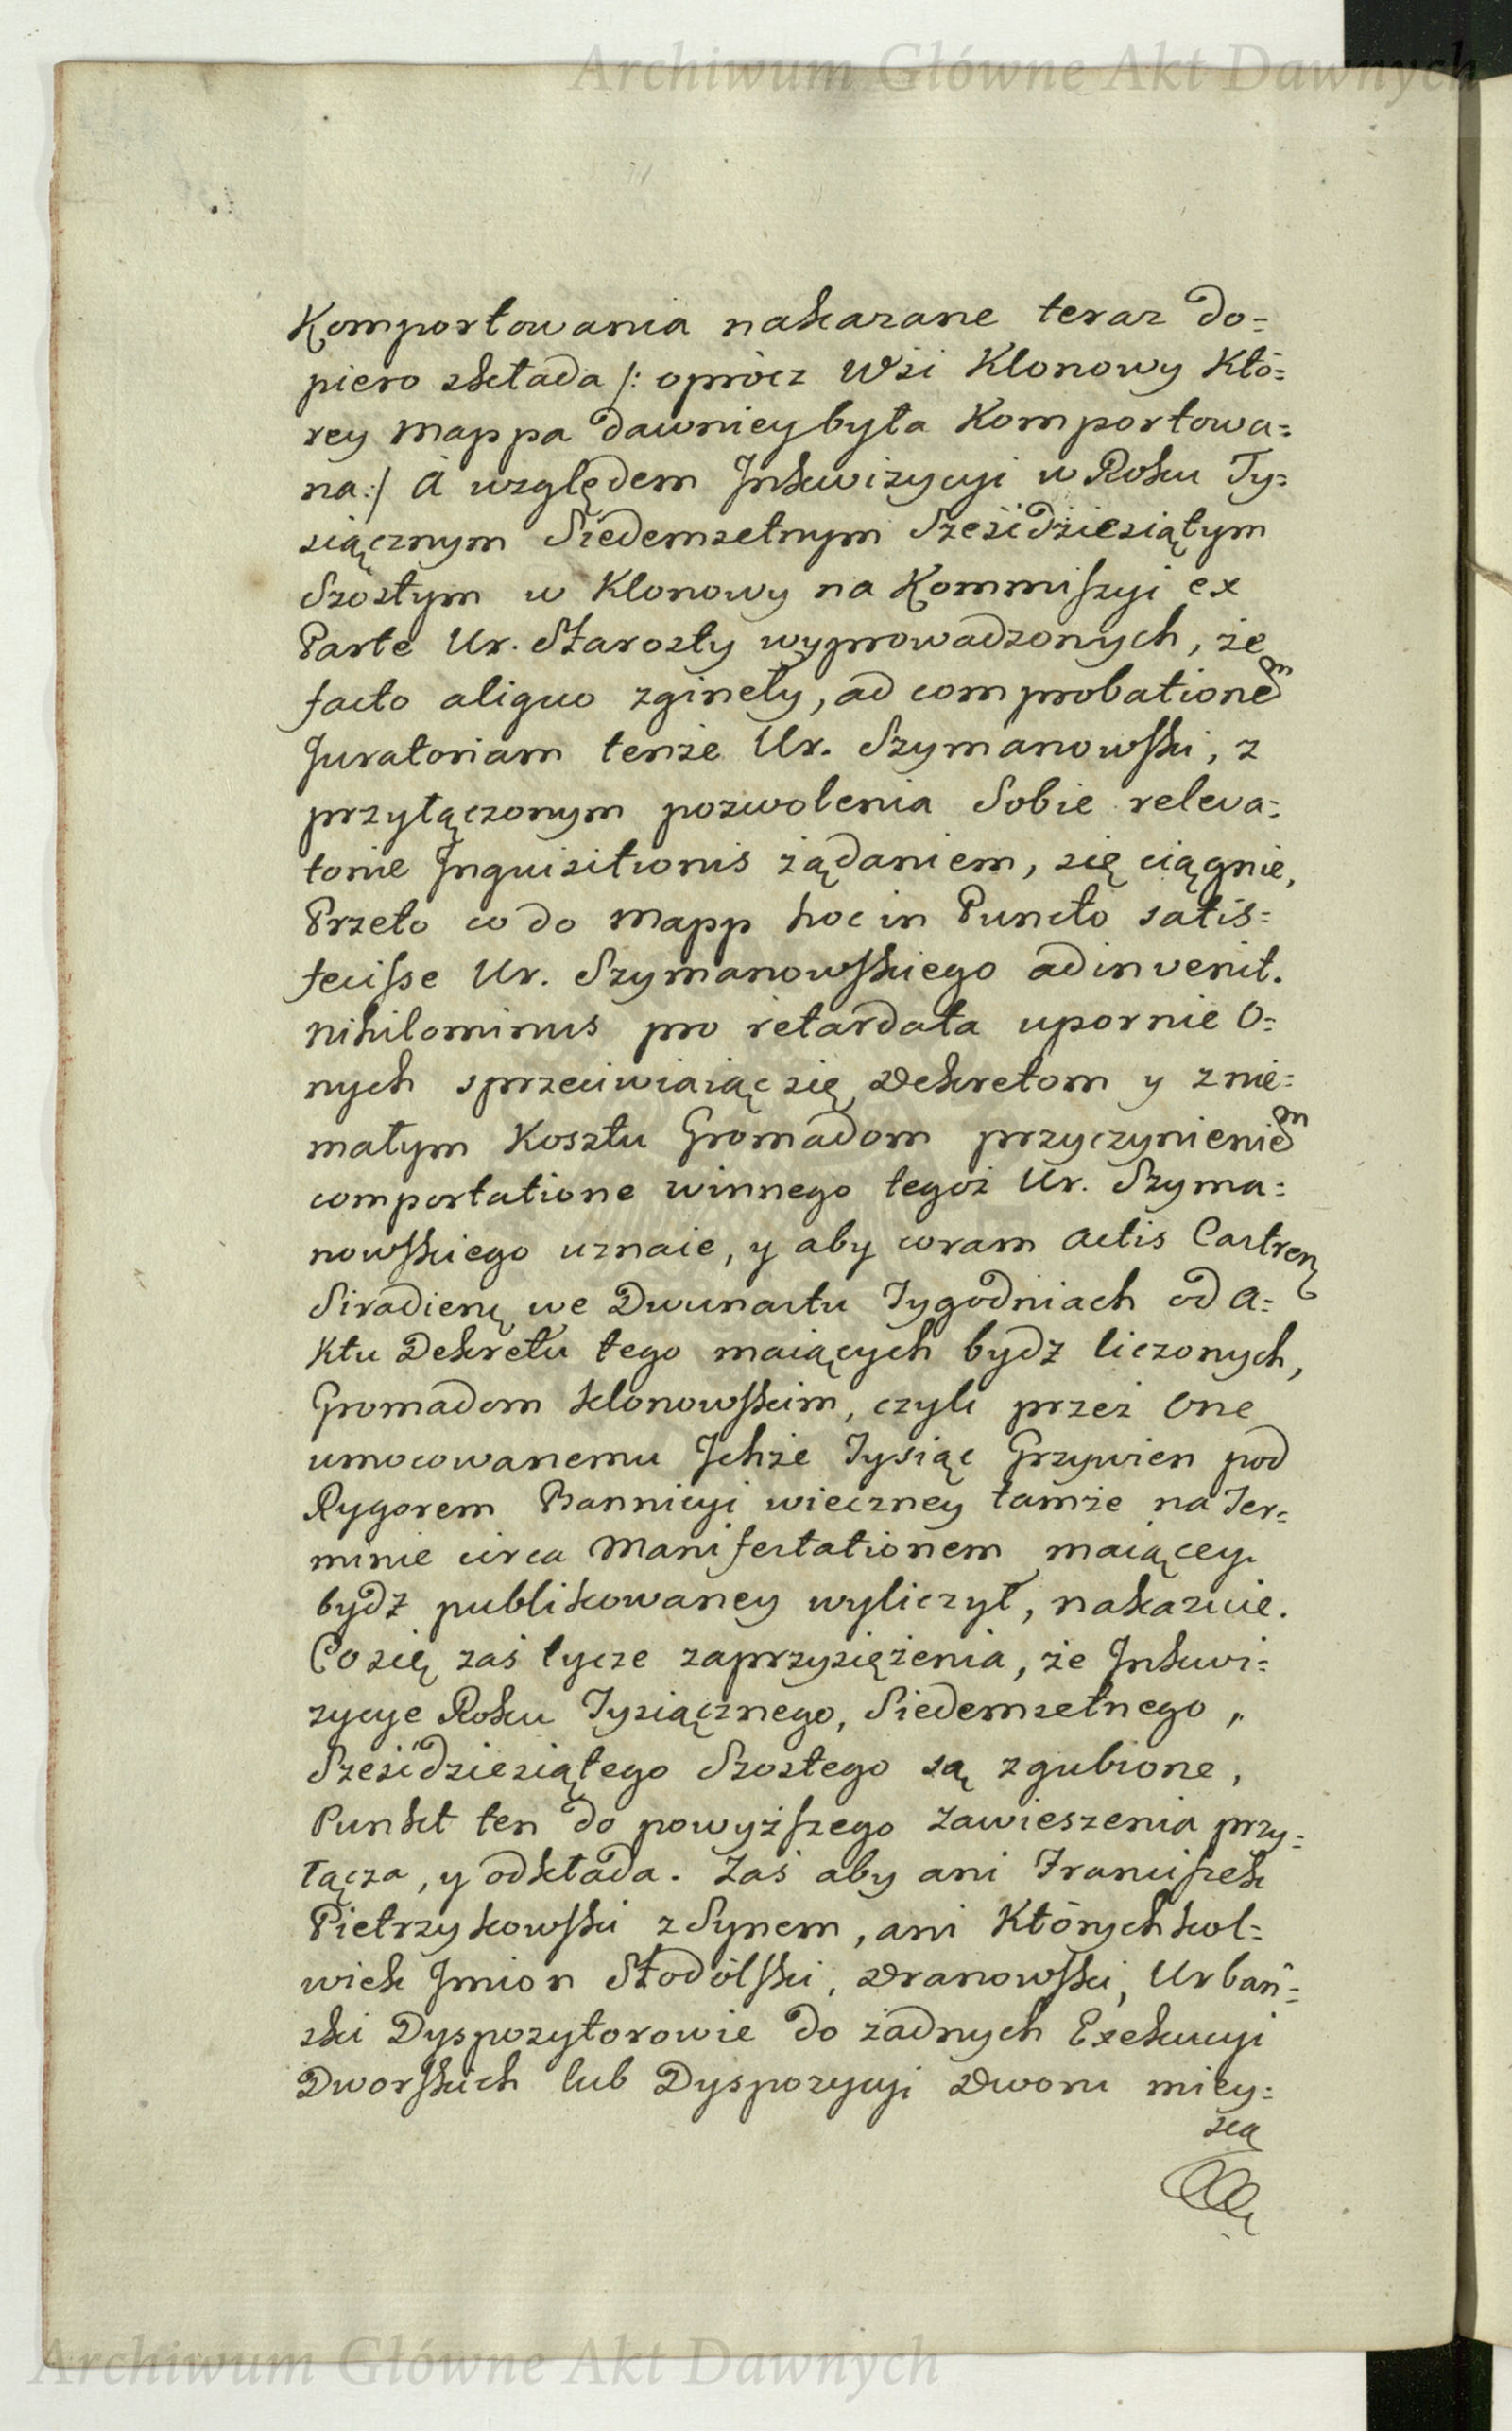 Archiwum Główne Akt Dawnych
Komportowania nakazane teraz do=
piero składa /: oprócz Wsi Klonowy Któ=
rey Mappa dawniey była Komportowa=
na :/ A względem Inkwizycyi w Roku Ty=
siącznym Siedemsetnym Sześidziesiątym
Szostym w Klonowy na Kommiszyi ex
Parte Ur. Starosty wyprowadzonych, że
facto aliquo zgineły, ad comprobationem
Juratoriam tenże Ur. Szymanowski, z
przyłączonym pozwolenia Sobie releva=
toriie Inquisitionis żądaniem, się ciągnie,
Przeto co do Mapp hoc in Puncto satis=
fecisse Ur. Szymanowskiego adinvenit.
Nihilominus pro retardata upornie O=
nych sprzeciwiaiąc się Dekretom y z nie=
małym Kosztu Gromadom przyczynieniem
comportatione winnego tegoż Ur. Szyma=
nowskiego uznaie, y aby coram Actis Castren
Siradien we Dwunastu Tygodniach od A=
Ktu Dekretu tego maiących bydź liczonych,
Gromadom klonowskim, czyli przez One
umocowanemu Ichże Tysiąc Grzywien pod
Rygorem Bannicyi wieczney tamże na Ter=
minie circa Manifestationem maiącey
bydź publikowaney wyliczył, nakazuie.
Co się zaś tycze zaprzysiężenia, że Inkwi=
zycye Roku Tysiącznego, Siedemsetnego,
Sześidziesiątego Szostego są zgubione,
Punkt ten do powyższego zawieszenia przy=
łącza, y odkłada. Zaś aby ani Franciszek
Pietrzykowski z Synem, ani Którychkol=
wiek Imion Stodólski, Dranowski, Urbań=
ski Dyspozytorowie do żadnych Exekucyi
Dworskich lub Dyspozycyi Dworu miey=
sca
Archiwum Główne Akt Dawnych